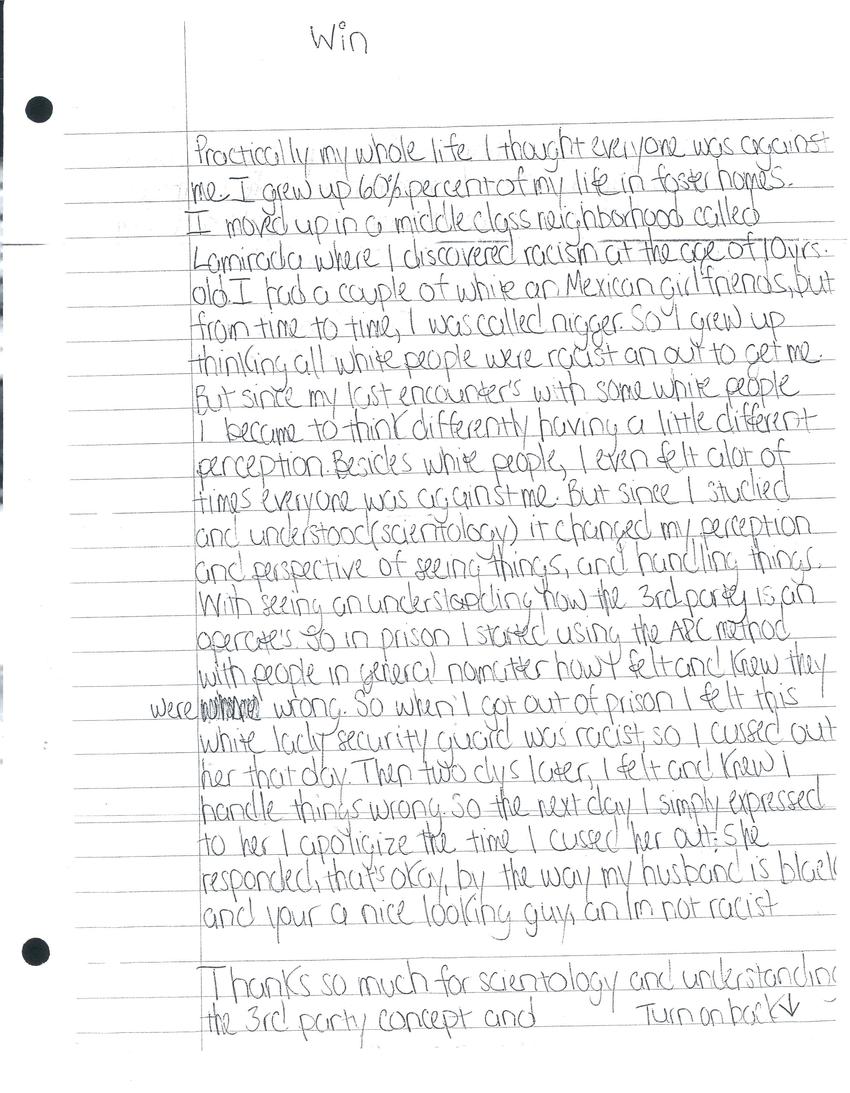 Win
Practically my whole life I thought everyone was against
me. I grew up 60% percent of my life in foster homes.
I moved up in a middle class neighborhood called
Lamirada where I discovered racism at the age of 10yrs.
old. I had a couple of white an Mexican girlfriends, but
from time to time, I was called nigger. So I grew up
thinking all white people were racist an out to get me.
But since my last encounter's with some white people
I became to think differently having a little different
perception. Besides white people, I even felt alot of
times everyone was against me. But since I studied
and understood (scientology) it changed my perception
and perspective of seeing things, and handling things.
With seeing an understanding how the 3rd party is an
operates. So in prison I started using the ARC method
with people in general nomatter how I felt and knew they
were wrong. So when I got out of prison I felt this
white lady security guard was racist, so I cussed out
her that day. Then two dys later, I felt and knew I
handle things wrong. So the next day I simply expressed
to her I apoligize the time I cussed her out. She
responded, that's okay, by the way my husband is black
and your a nice looking guy, an Im not racist
Thanks so much for scientology and understanding
the 3rd party concept and Turn on back ↓